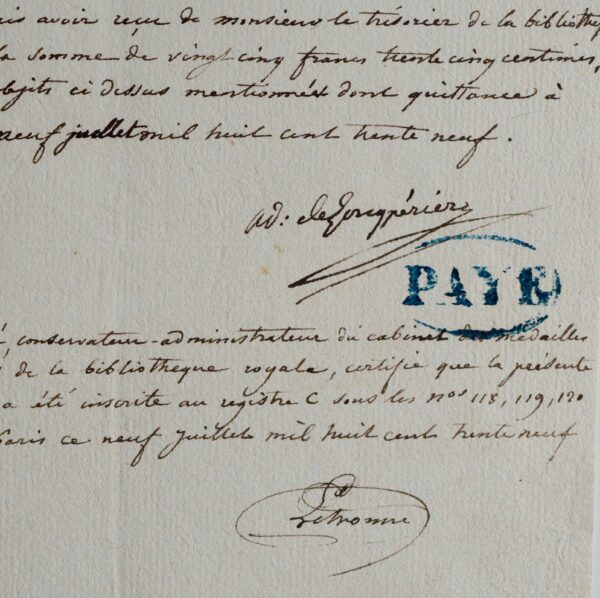 avoir reçu de monsieur le trésorier de la bibliothè
la somme de vingt cinq francs trente cinq centimes,
objets ci dessus mentionnés dont quittance à
neuf juillet mil huit cent trente neuf.
ad: de Longpérier
PAYE
conservateur-administrateur du cabinet des médailles
de la bibliothèque royale, certifie que la présente
a été inscrite au registre C sous les nos 118, 119, 120
Paris ce neuf juillet mil huit cent trente neuf
Letronne